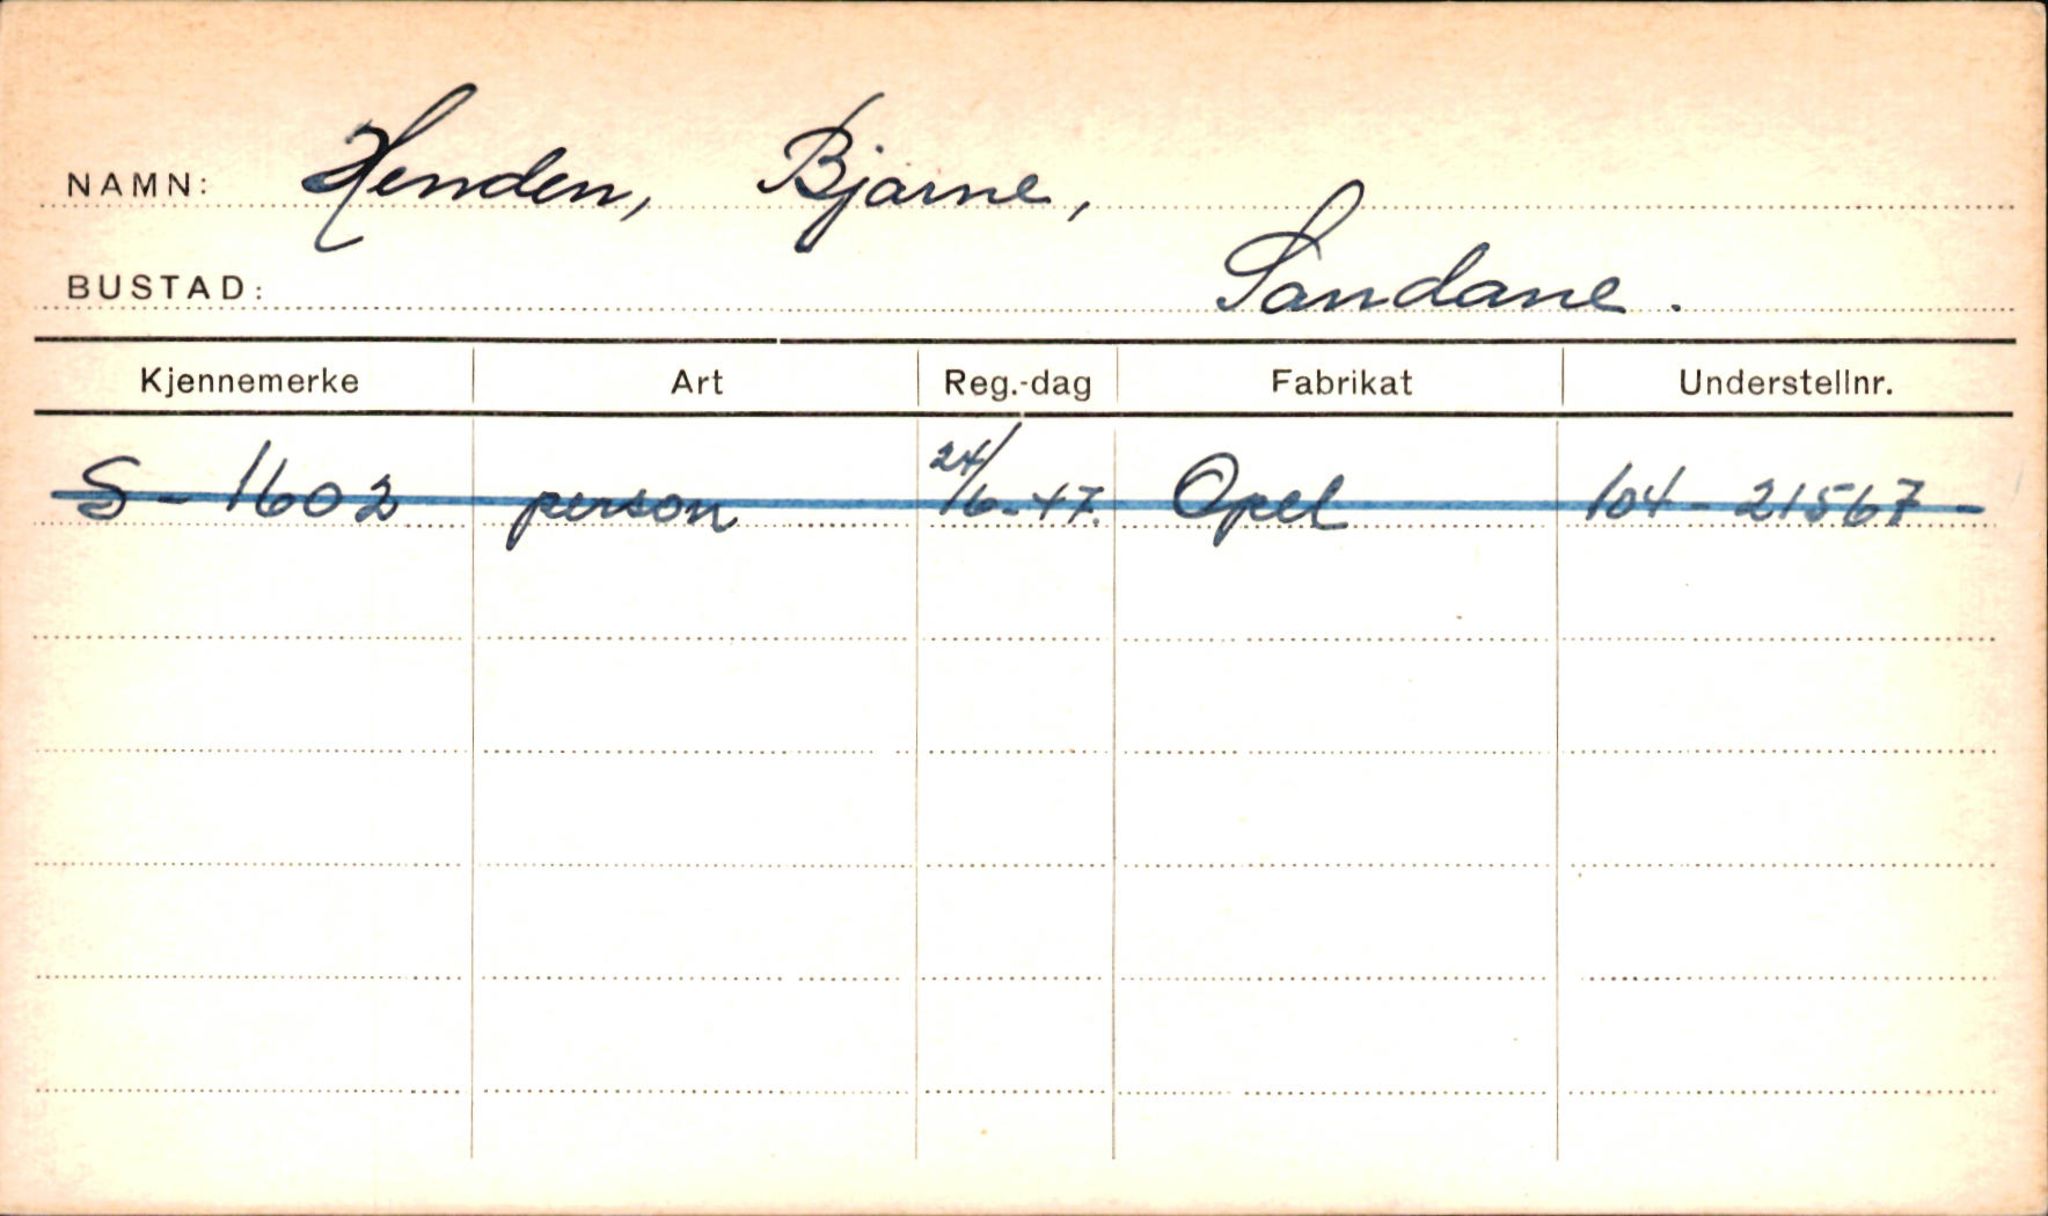 NAMN: Henden, Bjarne,
BUSTAD: Sandane.
Kjennemerke Art Reg.-dag Fabrikat Understellnr.
S-1602 person 24/6-47. Opel 104-21567-